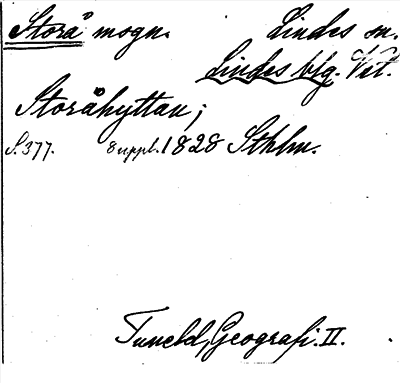 Storå mogn. Lindes sn.
Lindes blg. Vstl.
Storåhyttan;
S. 377. Suppl. 1828 Sthlm.
Tuneld, Geografi. II.